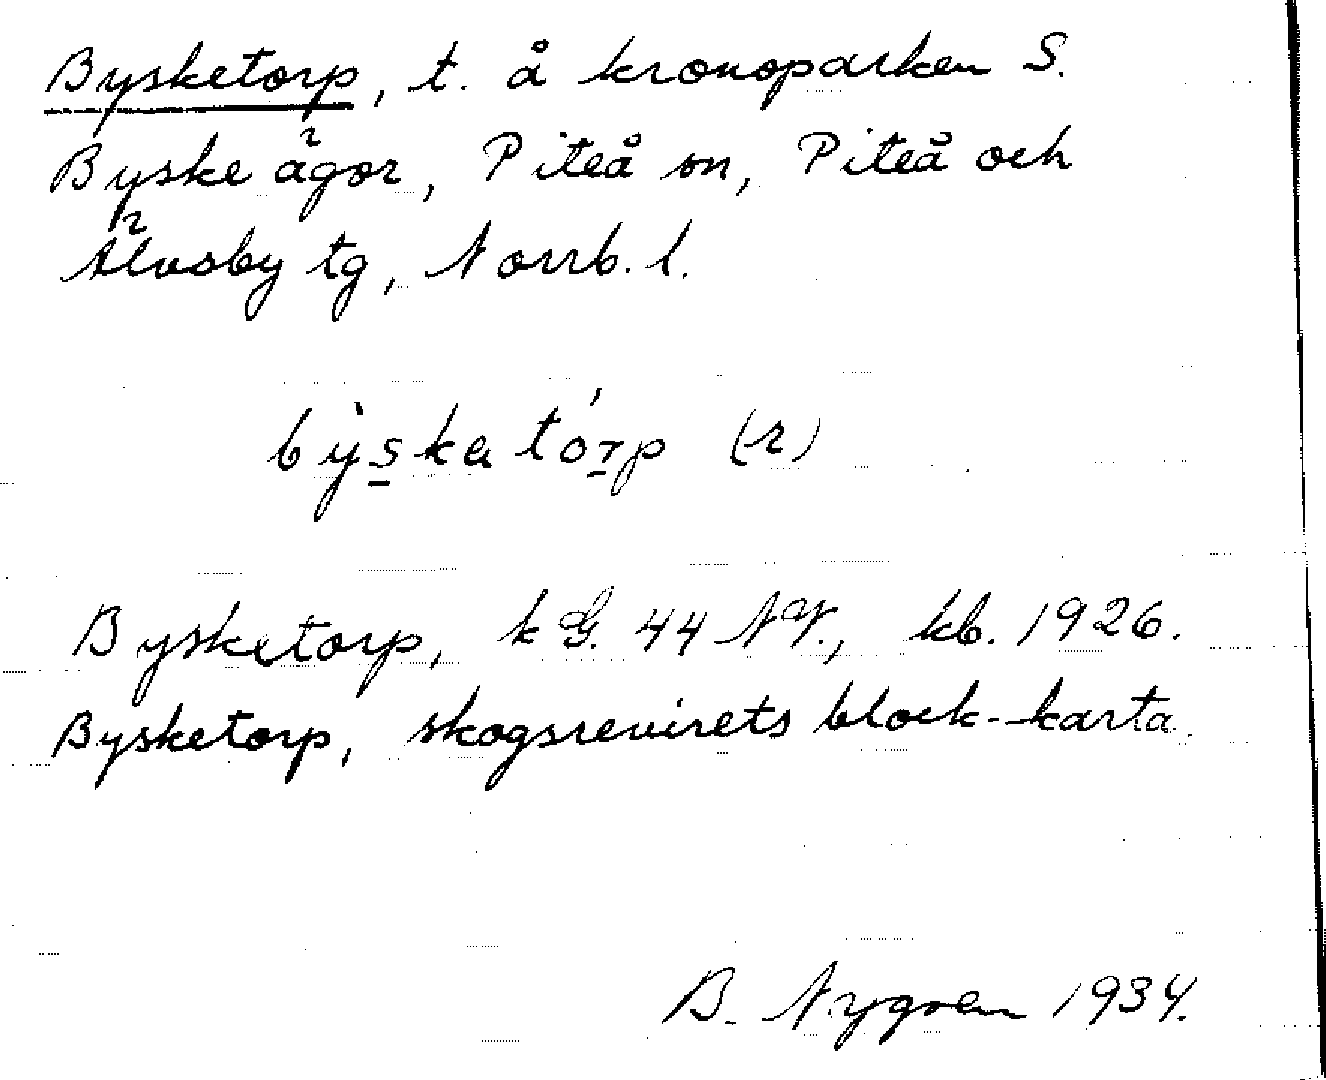 Bysketorp, t. å kronoparken S.
Byske ägor, Piteå sn, Piteå och
Älvsby tg, Norrb. l.
bỳskatórp (-r)
Bysketorp, kG. 44 NV., kb. 1926.
Bysketorp, skogsrevirets block-karta.
B. Nygren 1934.